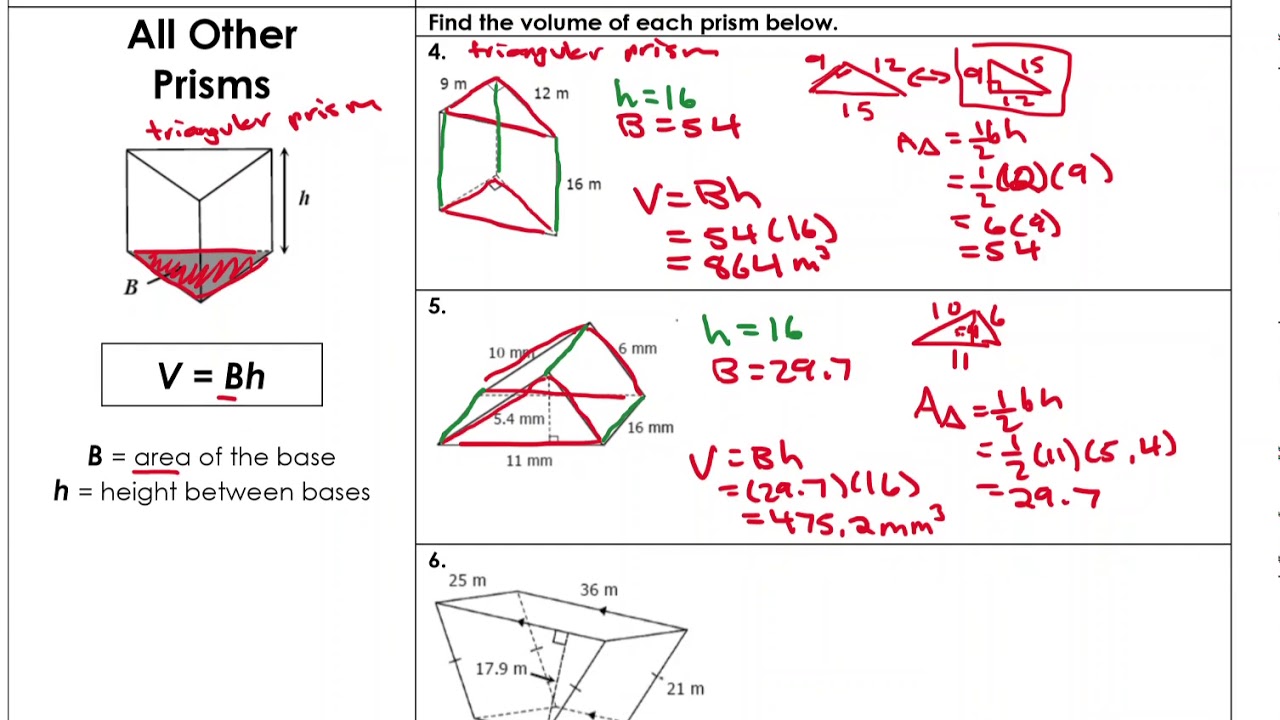 All Other
Prisms
triangular prism
h
B
V = Bh
B = area of the base
h = height between bases
Find the volume of each prism below.
4. triangular prism
9 m
12 m
16 m
h = 16
B = 54
V = Bh
= 54(16)
= 864 m³
9 12
15
9 15
12
A△ = 1/2 bh
= 1/2 (12)(9)
= 6(9)
= 54
5.
10 mm
6 mm
5.4 mm
16 mm
11 mm
h = 16
B = 29.7
V = Bh
= (29.7)(16)
= 475.2 mm³
10 6
11
A△ = 1/2 bh
= 1/2 (11)(5.4)
= 29.7
6.
25 m
36 m
17.9 m
21 m